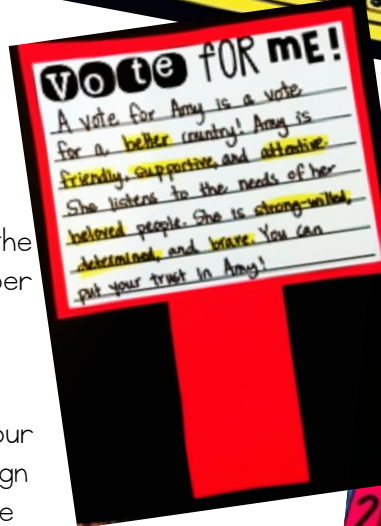 Vote FOR mE!
A vote for Amy is a vote
for a better country! Amy is
friendly, supportive, and attentive.
She listens to the needs of her
beloved people. She is strong-willed,
determined, and brave. You can
put your trust in Amy!
the
per
our
gn
e
2